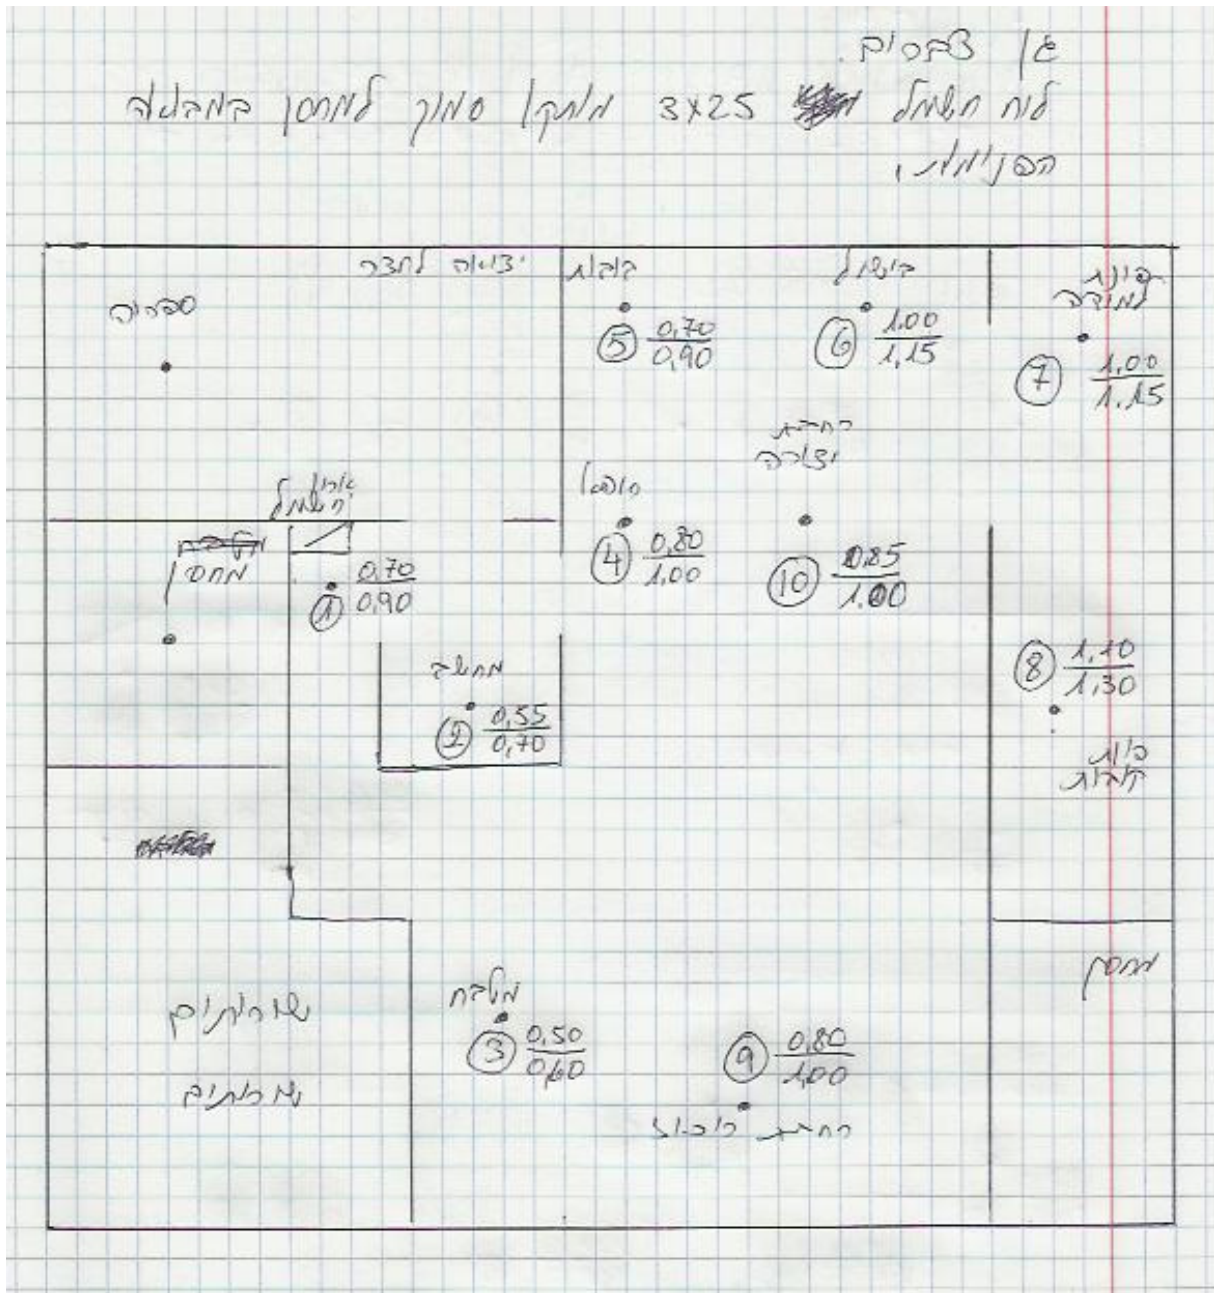 גן צברים.
לוח חשמל 3x25 מותקן סמוך למחסן במבואה
הפנימית.
יציאה לחצר
בובות
בישול
פינת
למידה
ספריה
5 0,70
0,90
6 1.00
1,15
7 1,00
1.15
רחבת
יצירה
ארון
חשמל
מחסן
1 0,70
0,90
4 0,80
1,00
10 0.85
1.00
מחשב
2 0,55
0,70
8 1,10
1,30
קוביות
מחסן
שרותים
שרותים
מטבח
3 0,50
0,60
9 0,80
1,00
רחבת ריכוז